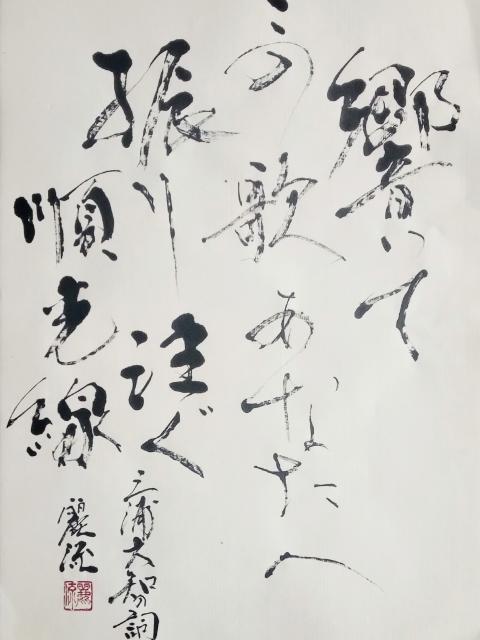 響いて
この歌あなたへ
振り注ぐ
順光線
三浦大知の詞
麗流